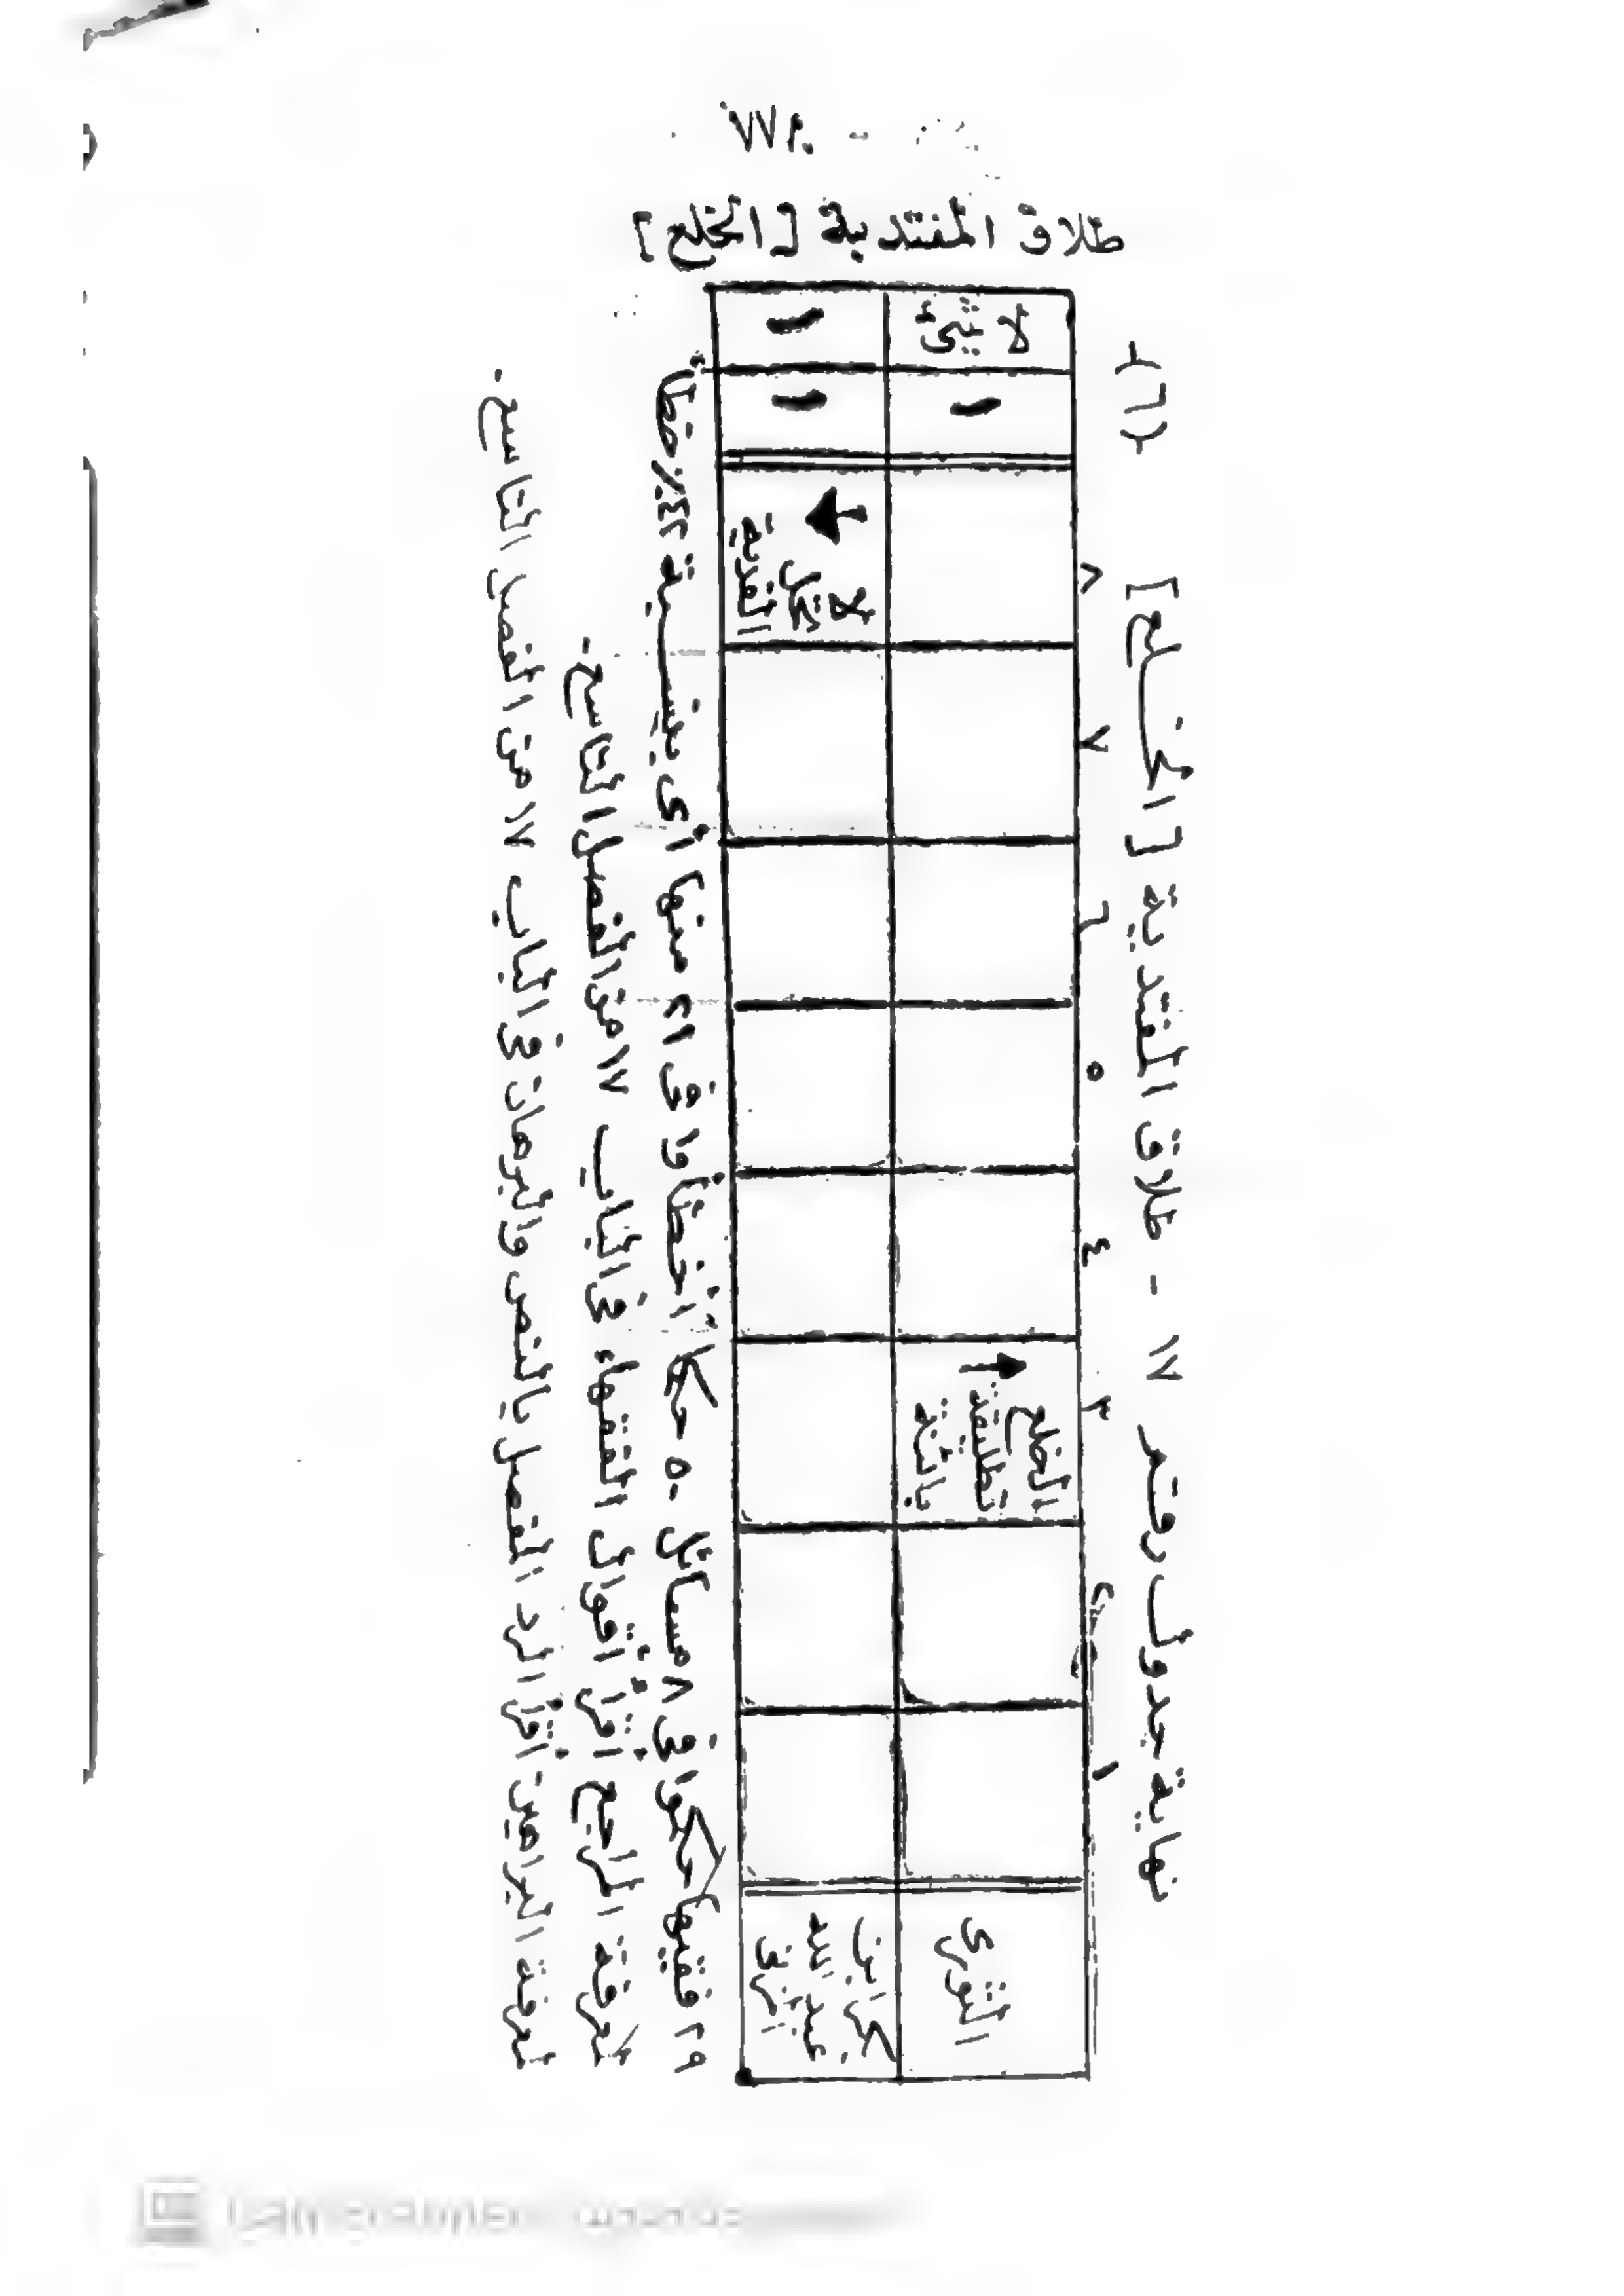 ١٧٧
طلاق المفتدية [الخلع]
نهاية جدول رقم ١٧ - طلاق المفتدية [الخلع] (٦)
١ ٢ ٣ ٤ ٥ ٦ ٧ ٨
الثوري
الخلع
تطليقة
بائنة
١
لا شئ
بكر بن
عبد الله
المزني
لا
تحل
الفدية
١
١
٢٩ فقيها حكموا في ٨ مسائل ٥٠ حكما أخطأوا في ٢١ منها أي بنسبة ٤٢٪ خطأ
لمعرفة الراجح اقرأ أقوال الفقهاء في الباب ١٧ من الفصل التاسع.
لمعرفة البراهين اقرأ الرد المفصل بالنص والبرهان في الباب ١٧ من الفصل التاسع.